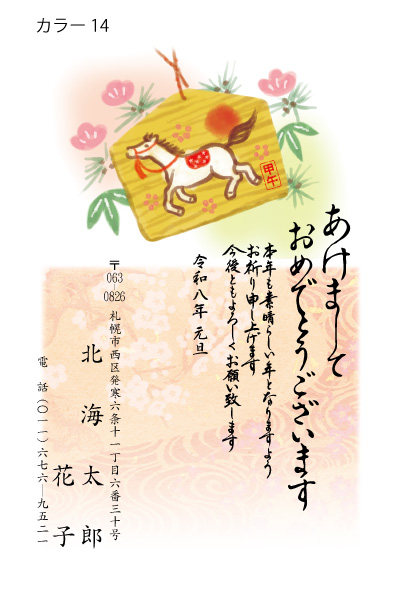 カラー 14
甲午
あけまして
おめでとうございます
本年も素晴らしい年となりますよう
お祈り申し上げます
今後ともよろしくお願い致します
令和八年 元旦
〒063
0826
札幌市西区発寒六条十一丁目六番三十号
北海太郎
花子
電話(〇一一)六七六―九五二一